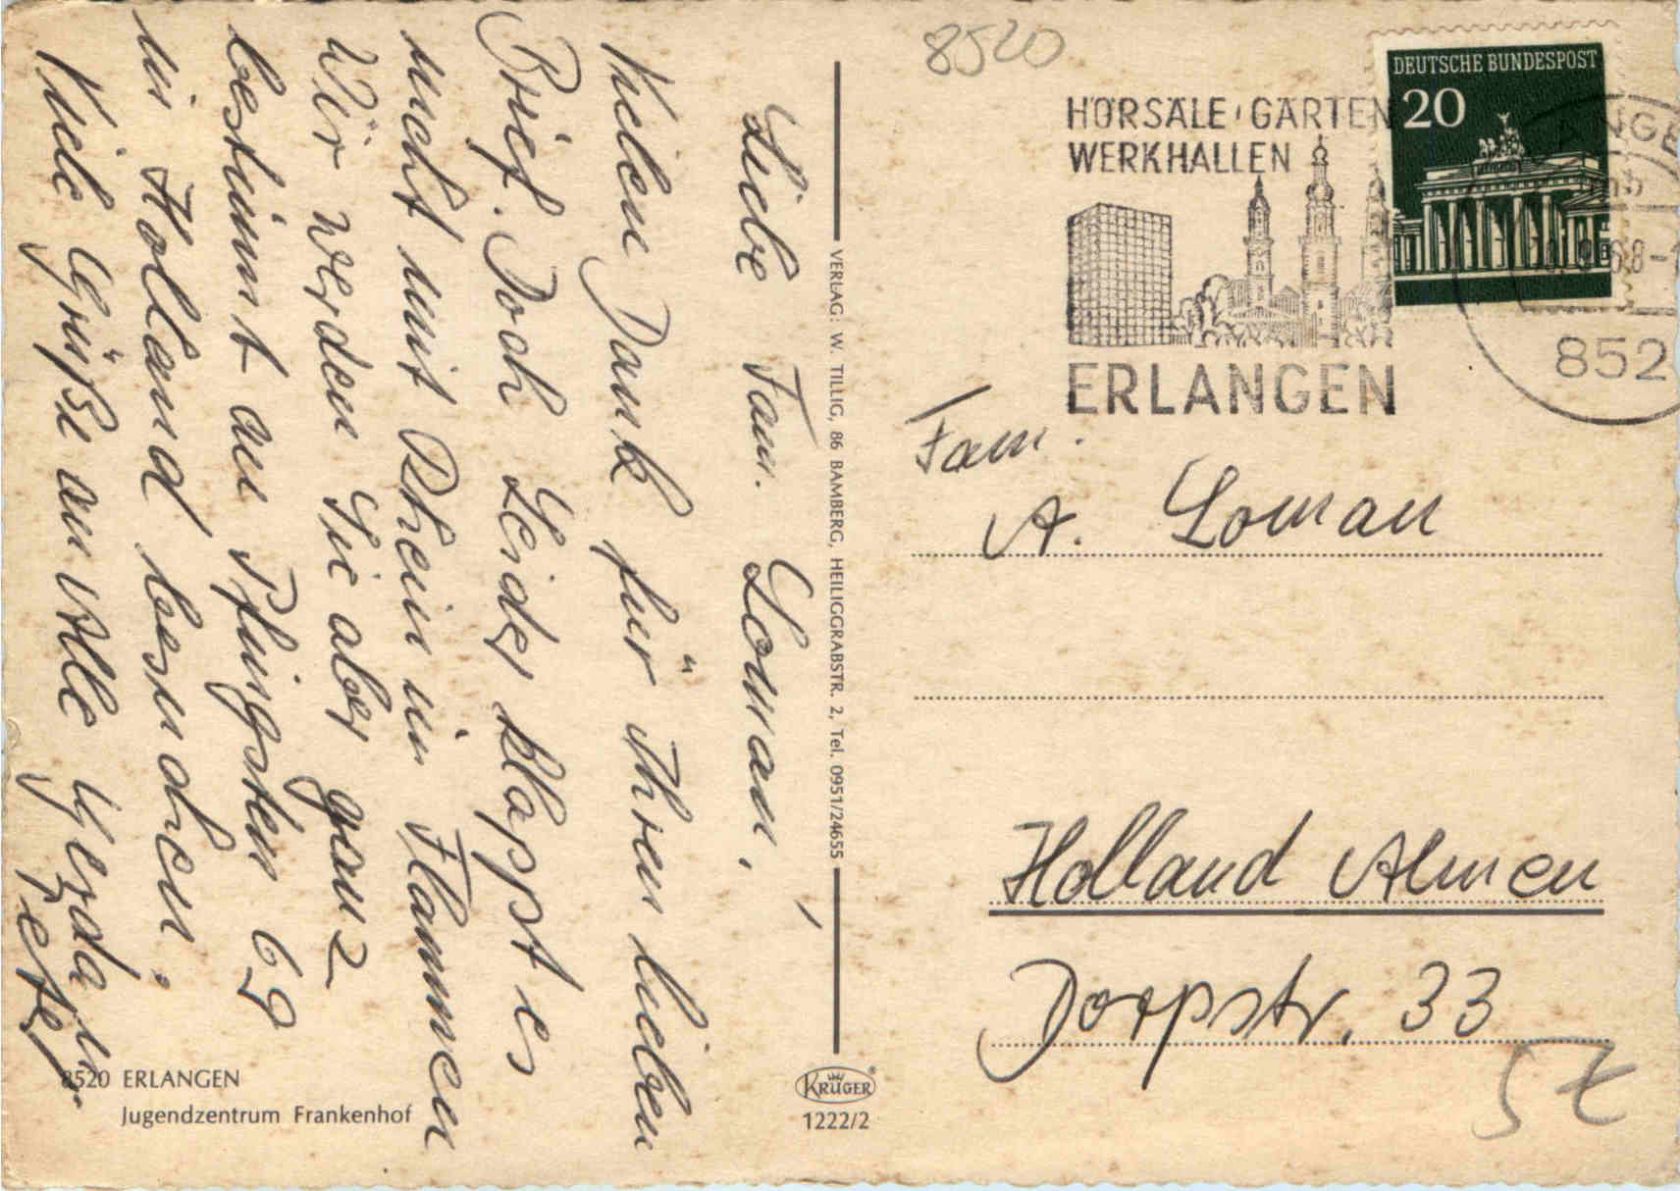 Liebe Fam. Loman,
Vielen Dank für Ihren lieben
Brief. Doch Leider klappt es
nucht mit Rhein in Flammen
Wir werden Sie aber ganz
bestimmt an Pfingsten 69
in Holland besuchen.
Viele Grüße an Alle Gerda u.
Peter
8520 ERLANGEN
Jugendzentrum Frankenhof
VERLAG: W. TILLIG, 86 BAMBERG, HEILIGGRABSTR. 2, Tel. 0951/24655
KRÜGER
1222/2
8520
HÖRSÄLE · GÄRTEN
WERKHALLEN
ERLANGEN
DEUTSCHE BUNDESPOST
20
852
Fam.
A. Loman
Holland Almen
Dorpstr. 33